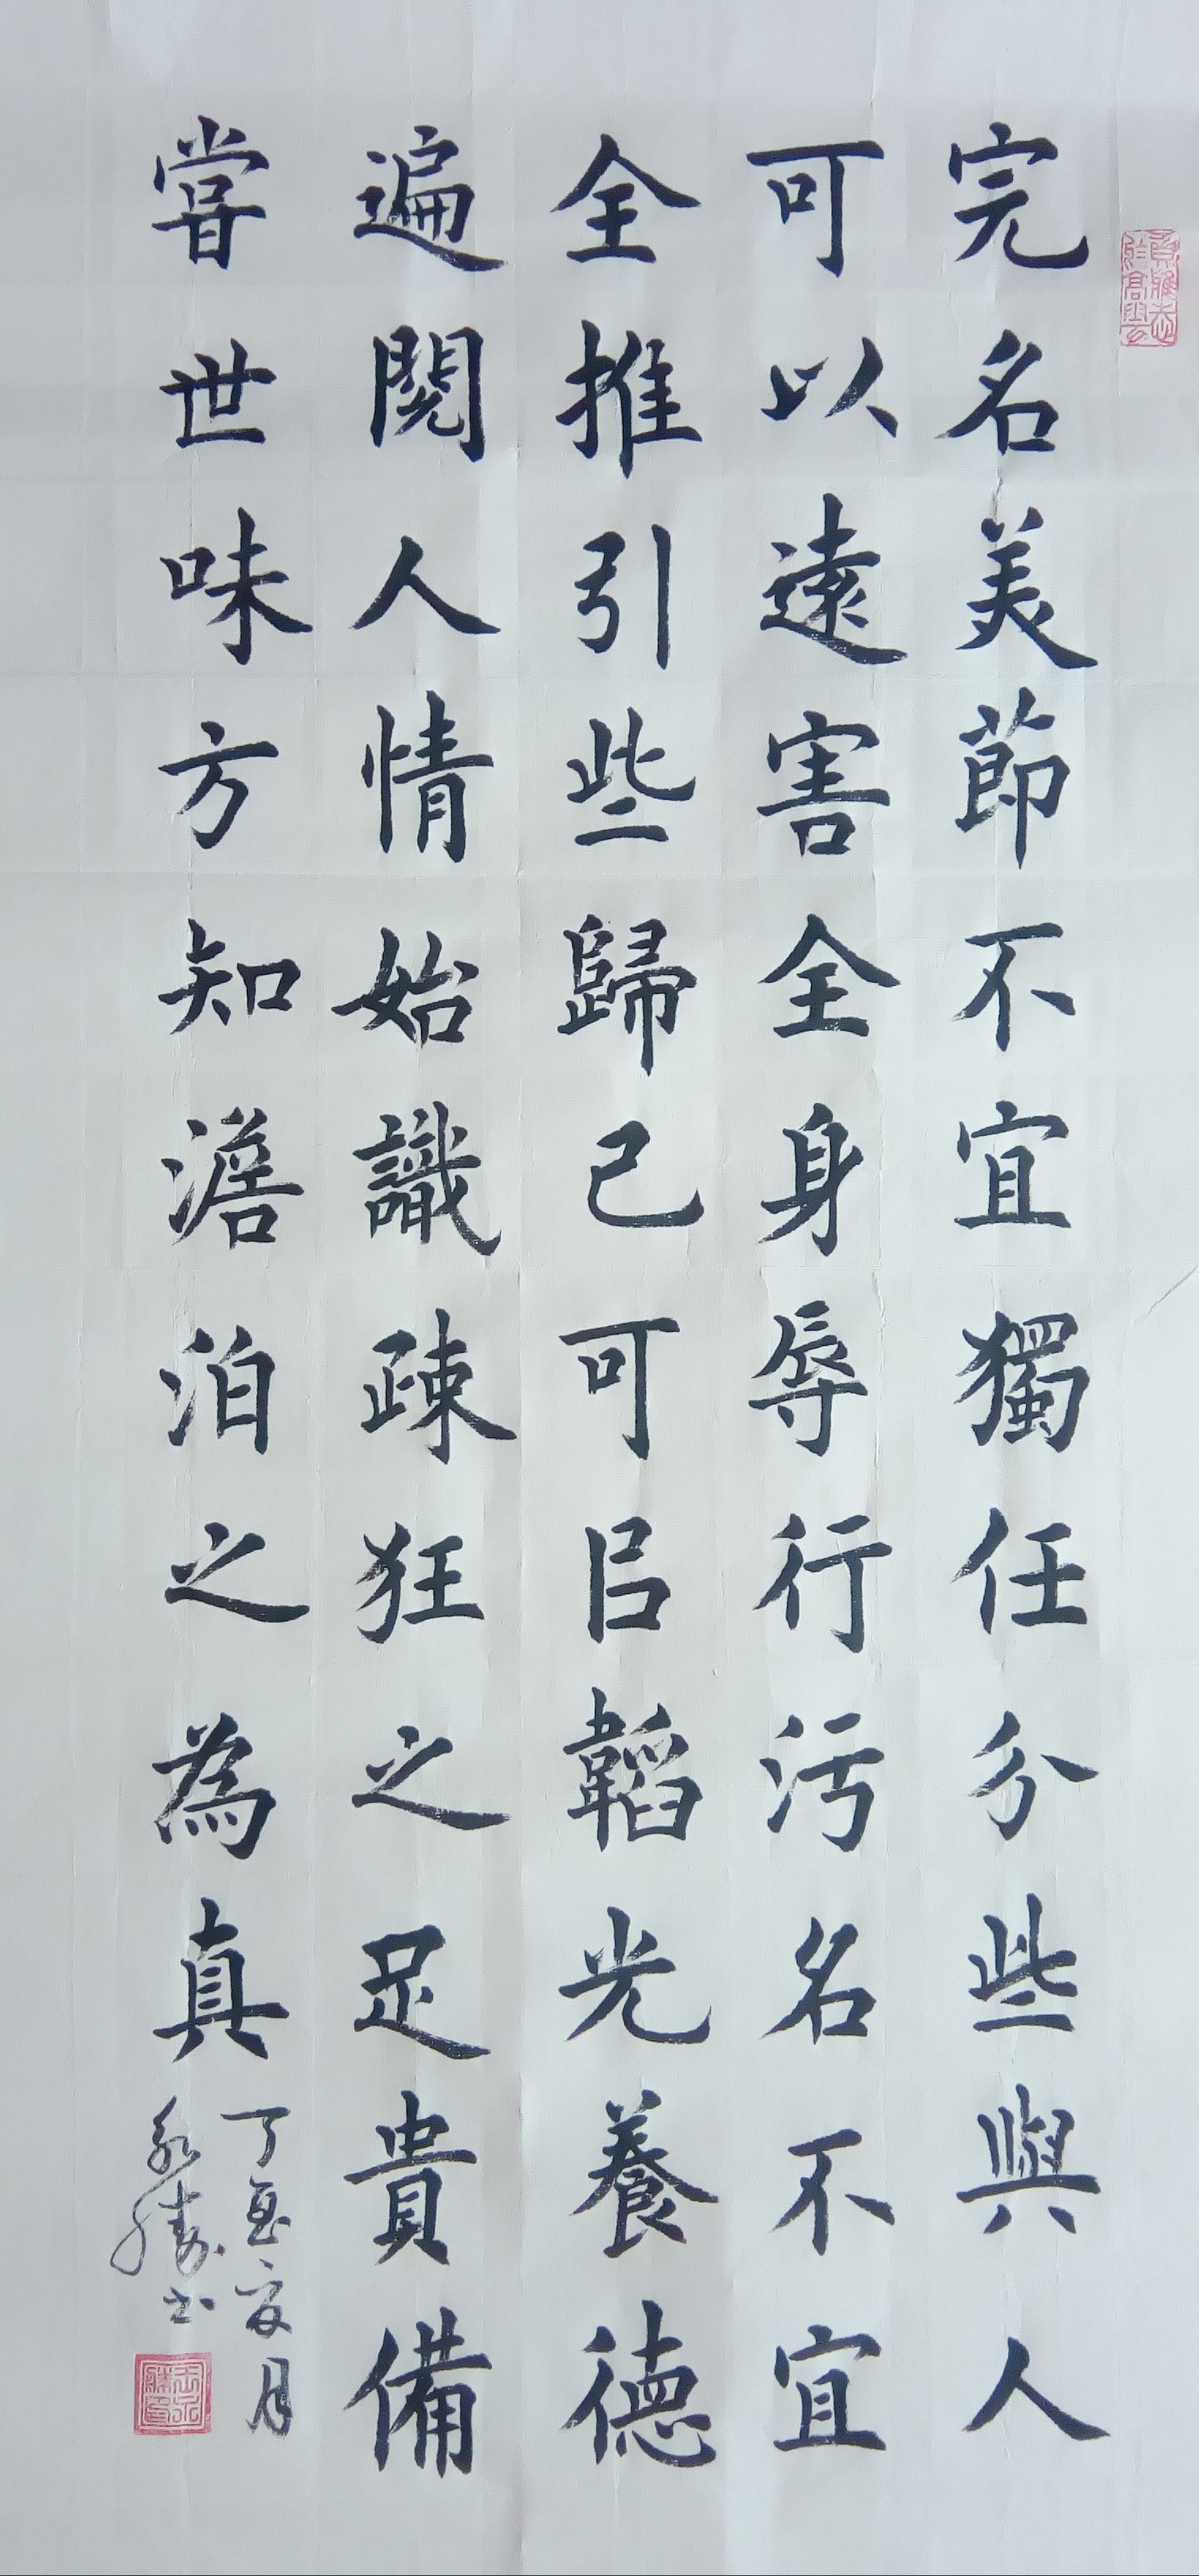 完名美節不宜獨任分些與人
可以遠害全身辱行污名不宜
全推引些歸己可㠯韜光養德
遍閱人情始識疎狂之足貴備
嘗世味方知澹泊之為真
丁酉夏月
永勝書